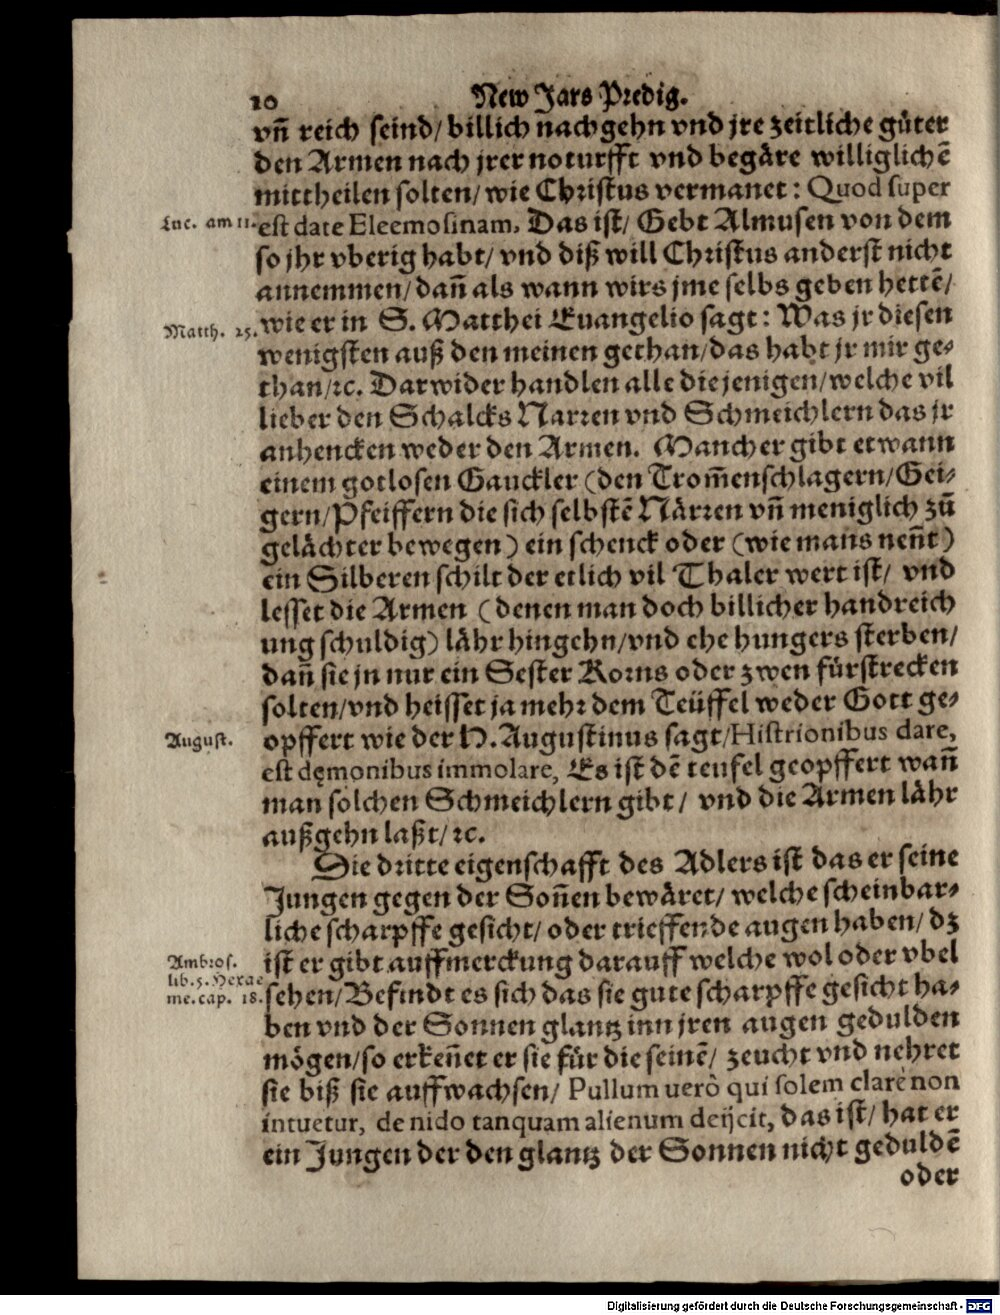 10 New Jars Predig.
vñ reich seind/ billich nachgehn vnd jre zeitliche güter
den Armen nach jrer noturfft vnd begäre williglichẽ
mittheilen solten/ wie Christus vermanet: Quod super
Luc. am 11. est date Eleemosinam, Das ist/ Gebt Almusen von dem
so jhr vberig habt/ vnd diß will Christus anderst nicht
annemmen/ dañ als wann wirs jme selbs geben hettẽ/
Matth. 25. wie er in S. Matthei Euangelio sagt: Was jr diesen
wenigsten auß den meinen gethan/ das habt jr mir ge-
than/ ꝛc. Darwider handlen alle die jenigen/ welche vil
lieber den Schalcks Narren vnd Schmeichlern das jr
anhencken weder den Armen. Mancher gibt etwann
einem gotlosen Gauckler (den Trom̃enschlagern/ Gei-
gern/ Pfeiffern die sich selbstẽ Närren vñ meniglich zů
gelächter bewegen) ein schenck oder (wie mans neñt)
ein Silberen schilt der etlich vil Thaler wert ist/ vnd
lesset die Armen (denen man doch billicher handreich
ung schuldig) lähr hingehn/ vnd ehe hungers sterben/
dañ sie jn nur ein Sester Korns oder zwen fürstrecken
solten/ vnd heisset ja mehr dem Teüffel weder Gott ge-
August. opffert wie der H. Augustinus sagt/ Histrionibus dare,
est dęmonibus immolare, Es ist dẽ teufel geopffert wañ
man solchen Schmeichlern gibt/ vnd die Armen lähr
außgehn laßt/ ꝛc.
Die dritte eigenschafft des Adlers ist das er seine
Jungen gegen der Soñen bewäret/ welche scheinbar-
liche scharpffe gesicht/ oder trieffende augen haben/ dz
Ambros. ist er gibt auffmerckung darauff welche wol oder vbel
lib. 5. Hexae
me. cap. 18. sehen/ Befindt es sich das sie gute scharpffe gesicht ha-
ben vnd der Sonnen glantz inn jren augen gedulden
mögen/ so erkeñet er sie für die seinẽ/ zeucht vnd nehret
sie biß sie auffwachsen/ Pullum uerò qui solem clarè non
intuetur, de nido tanquam alienum deijcit, das ist/ hat er
ein Jungen der den glantz der Sonnen nicht geduldẽ
oder
Digitalisierung gefördert durch die Deutsche Forschungsgemeinschaft - DFG